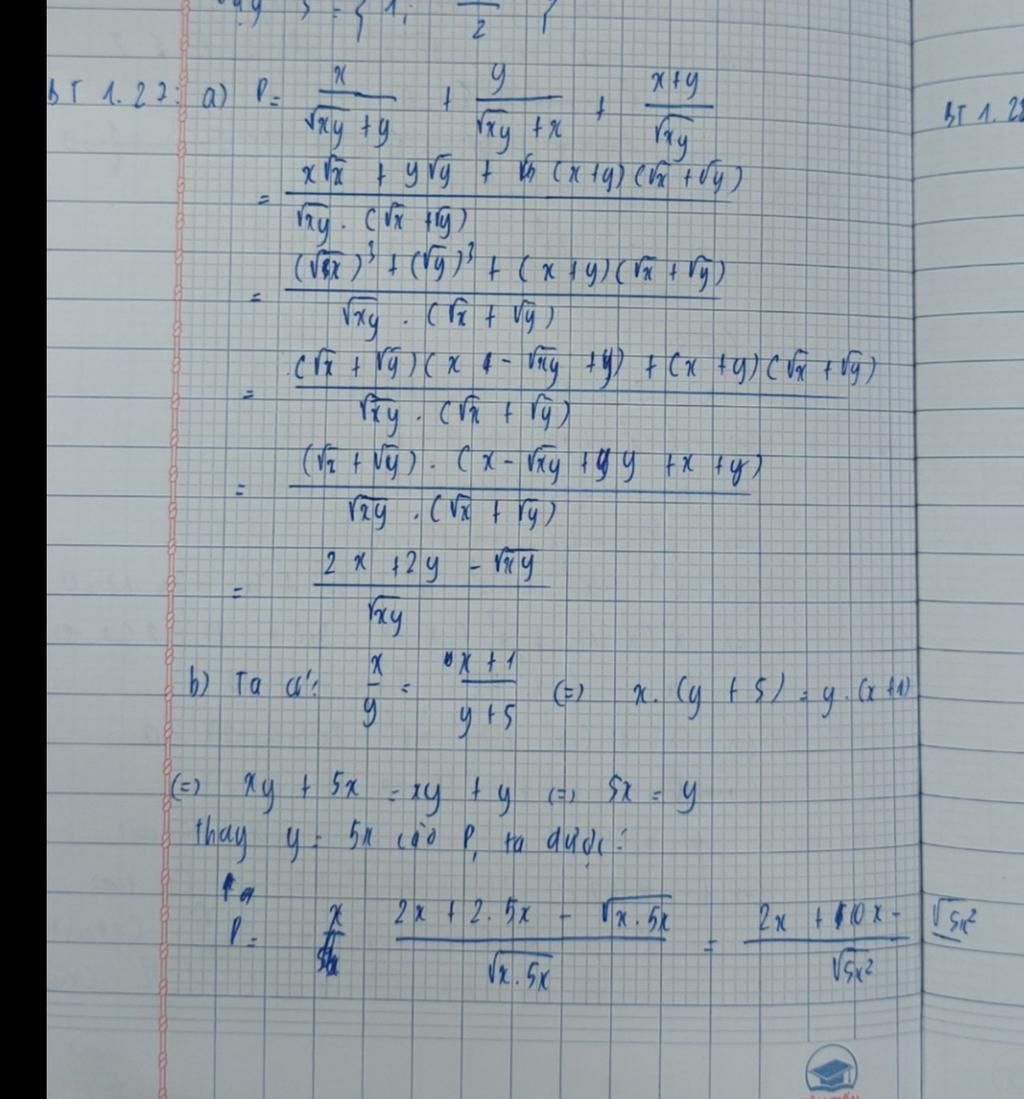 2
BT 1.27: a) P = x/(√xy + y) + y/(√xy + x) + (x+y)/√xy
= (x√x + y√y + (x+y)(√x + √y))/(√xy . (√x + √y))
= ((√x)³ + (√y)³ + (x+y)(√x + √y))/(√xy . (√x + √y))
= ((√x + √y)(x - √xy + y) + (x+y)(√x + √y))/(√xy . (√x + √y))
= ((√x + √y) . (x - √xy + y + x + y))/(√xy . (√x + √y))
= (2x + 2y - √xy)/√xy
b) Ta có: x/y = (x+1)/(y+5) (=) x. (y + 5) = y. (x+1)
(=) xy + 5x = xy + y (=) 5x = y
thay y = 5x vào P, ta được:
P = (2x + 2.5x - √x.5x)/√x.5x = (2x + 10x - √5x²)/√5x²